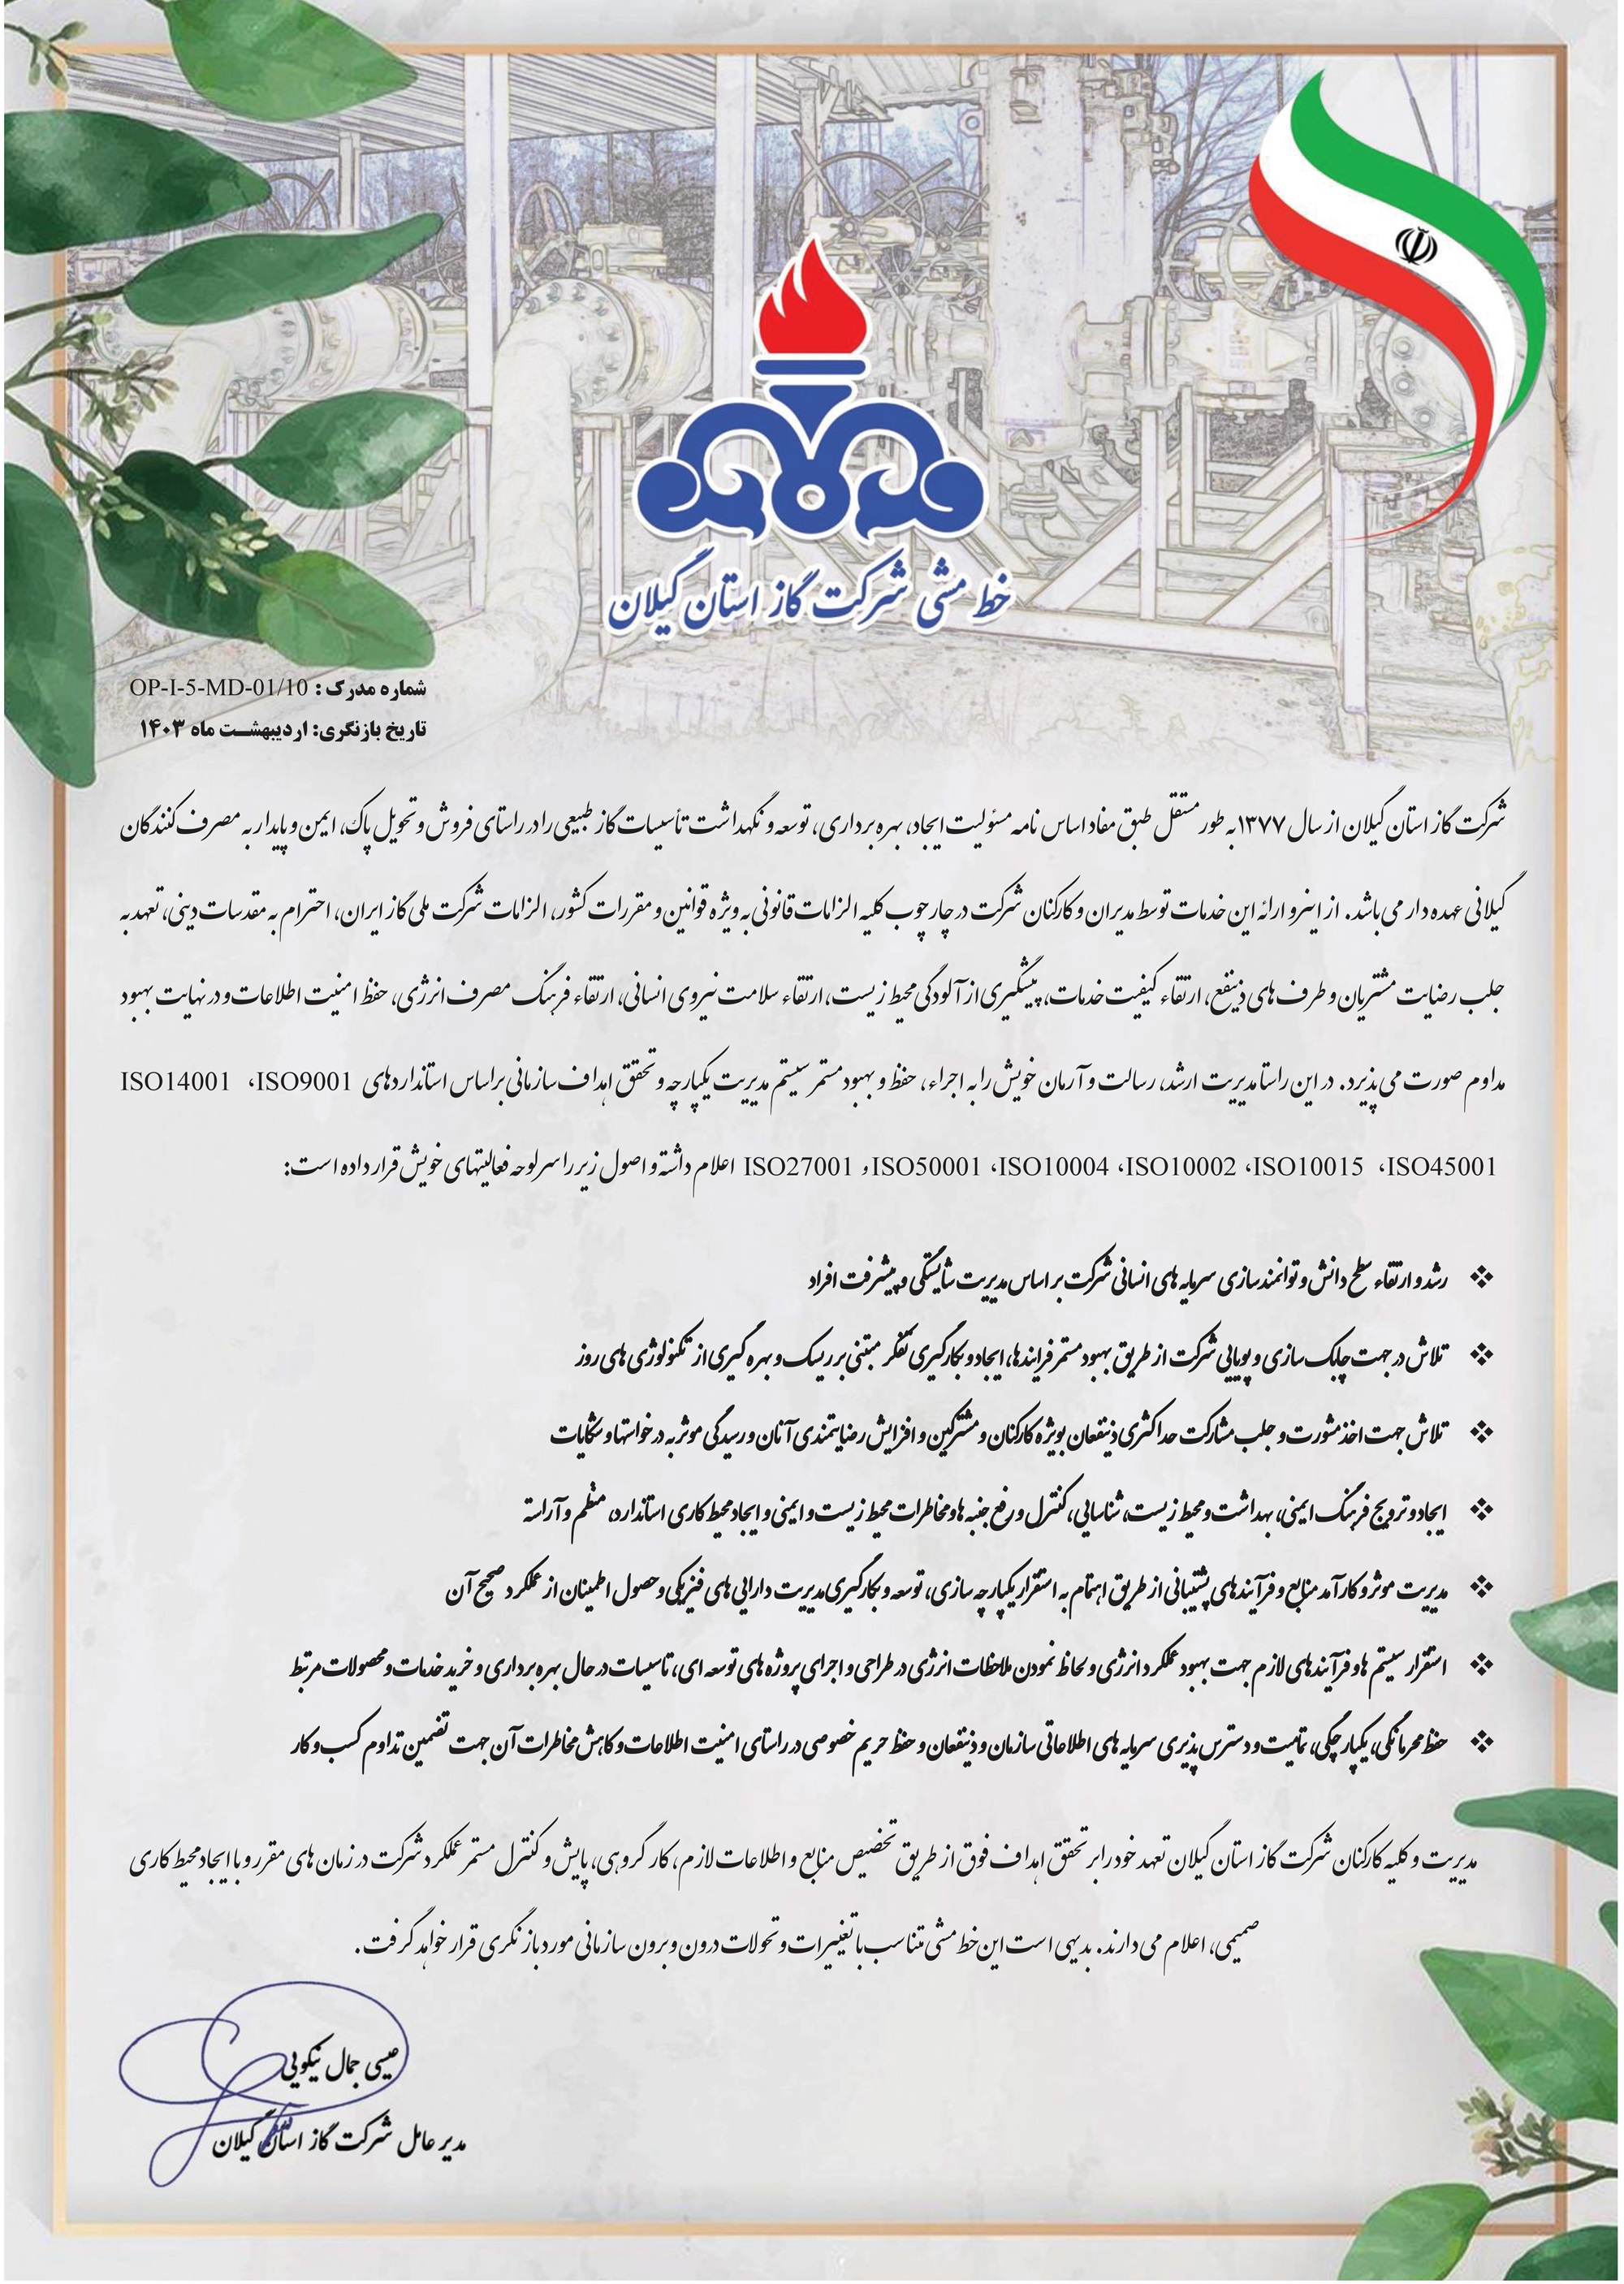 خط مشی شرکت گاز استان گیلان
شماره مدرک : OP-I-5-MD-01/10
تاریخ بازنگری: اردیبهشت ماه ۱۴۰۳
شرکت گاز استان گیلان از سال ۱۳۷۷ به طور مستقل طبق مفاد اساس نامه مسئولیت ایجاد، بهره برداری، توسعه و نگهداشت تأسیسات گاز طبیعی را در راستای فروش و تحویل پاک، ایمن و پایدار به مصرف کنندگان
گیلانی عهده دار می باشد. از اینرو ارائه این خدمات توسط مدیران و کارکنان شرکت در چارچوب کلیه الزامات قانونی به ویژه قوانین و مقررات کشور، الزامات شرکت ملی گاز ایران، احترام به مقدسات دینی، تعهد به
جلب رضایت مشتریان و طرف های ذینفع، ارتقاء کیفیت خدمات، پیشگیری از آلودگی محیط زیست، ارتقاء سلامت نیروی انسانی، ارتقاء فرهنگ مصرف انرژی، حفظ امنیت اطلاعات و در نهایت بهبود
مداوم صورت می پذیرد. در این راستا مدیریت ارشد، رسالت و آرمان خویش را به اجراء، حفظ و بهبود مستمر سیستم مدیریت یکپارچه و تحقق اهداف سازمانی براساس استانداردهای ISO9001، ISO14001
ISO45001، ISO10015، ISO10002، ISO10004، ISO50001 و ISO27001 اعلام داشته و اصول زیر را سرلوحه فعالیتهای خویش قرار داده است:
❖ رشد و ارتقاء سطح دانش و توانمندسازی سرمایه های انسانی شرکت بر اساس مدیریت شایستگی و پیشرفت افراد
❖ تلاش در جهت چابک سازی و پویایی شرکت از طریق بهبود مستمر فرایندها، ایجاد و بکارگیری تفکر مبتنی بر ریسک و بهره گیری از تکنولوژی های روز
❖ تلاش جهت اخذ مشورت و جلب مشارکت حداکثری ذینفعان بویژه کارکنان و مشترکین و افزایش رضایتمندی آنان و رسیدگی موثر به درخواستها و شکایات
❖ ایجاد و ترویج فرهنگ ایمنی، بهداشت و محیط زیست، شناسایی، کنترل و رفع جنبه ها و مخاطرات محیط زیست و ایمنی و ایجاد محیط کاری استاندارد، منظم و آراسته
❖ مدیریت موثر و کارآمد منابع و فرآیندهای پشتیبانی از طریق اهتمام به استقرار یکپارچه سازی، توسعه و بکارگیری مدیریت دارایی های فیزیکی و حصول اطمینان از عملکرد صحیح آن
❖ استقرار سیستم ها و فرآیندهای لازم جهت بهبود عملکرد انرژی و لحاظ نمودن ملاحظات انرژی در طراحی و اجرای پروژه های توسعه ای، تاسیسات در حال بهره برداری و خرید خدمات و محصولات مرتبط
❖ حفظ محرمانگی، یکپارچگی، تمامیت و دسترس پذیری سرمایه های اطلاعاتی سازمان و ذینفعان و حفظ حریم خصوصی در راستای امنیت اطلاعات و کاهش مخاطرات آن جهت تضمین تداوم کسب و کار
مدیریت و کلیه کارکنان شرکت گاز استان گیلان تعهد خود را بر تحقق اهداف فوق از طریق تخصیص منابع و اطلاعات لازم، کار گروهی، پایش و کنترل مستمر عملکرد شرکت در زمان های مقرر و با ایجاد محیط کاری
صمیمی، اعلام می دارند. بدیهی است این خط مشی متناسب با تغییرات و تحولات درون و برون سازمانی مورد بازنگری قرار خواهد گرفت.
عیسی جمال نیکویی
مدیر عامل شرکت گاز استان گیلان